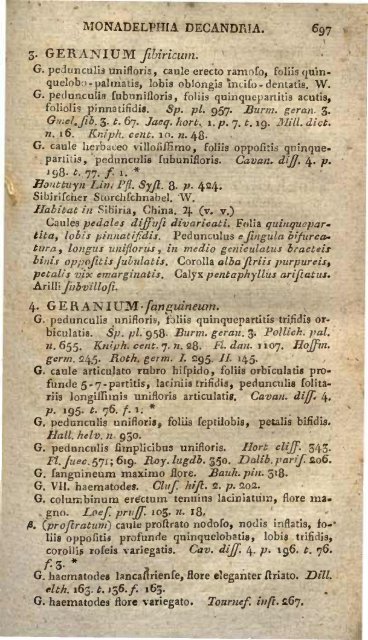 MONADELPHIA DECANDRIA. 697
3. GERANIUM sibiricum.
G. pedunculis unifloris, caule erecto ramoso, foliis quin-
quelobo-palmatis, lobis oblongis inciso-dentatis. W.
G. pedunculis subunifloris, foliis quinquepartitis acutis,
foliolis pinnatifidis. Sp. pl. 957. Burm. geran. 3.
Gmel. sib. 3. t. 67. Jacq. hort. 1. p. 7. t. 19. Mill. dict.
n. 16. Kniph. cent. 10. n. 48.
G. caule herbaceo villosissimo, foliis oppositis quinque-
partitis, pedunculis subunifloris. Cavan. diss. 4. p.
198. t. 77. f. 1. *
Houttuyn Lin. Pfl. Syst. 8. p. 424.
Sibirischer Storchschnabel. W.
Habitat in Sibiria, China. ♃ (v. v.)
Caules pedales diffusi divaricati. Folia quinquepar-
tita, lobis pinnatifidis. Pedunculus e singula bifurca-
tura, longus uniflorus, in medio geniculatus bracteis
binis oppositis subulatis. Corolla alba striis purpureis,
petalis vix emarginatis. Calyx pentaphyllus aristatus.
Arilli subvillosi.
4. GERANIUM sanguineum.
G. pedunculis unifloris, foliis quinquepartitis trifidis or-
biculatis. Sp. pl. 958. Burm. geran. 3. Pollich. pal.
n. 655. Kniph. cent. 7. n. 28. Fl. dan. 1107. Hoffm.
germ. 245. Roth. germ. I. 295. II. 145.
G. caule articulato rubro hispido, foliis orbiculatis pro-
funde 5-7-partitis, laciniis trifidis, pedunculis solita-
riis longissimis unifloris articulatis. Cavan. diss. 4.
p. 195. t. 76. f. 1. *
G. pedunculis unifloris, foliis septilobis, petalis bifidis.
Hall. helv. n. 930.
G. pedunculis simplicibus unifloris. Hort. cliff. 343.
Fl. suec. 571; 619. Roy. lugdb. 350. Dalib. paris. 206.
G. sanguineum maximo flore. Bauh. pin. 318.
G. VII. haematodes. Clus. hist. 2. p. 202.
G. columbinum erectum tenuius laciniatum, flore ma-
gno. Loes. pruss. 103. n. 18.
β. (prostratum) caule prostrato nodoso, nodis inflatis, fo-
liis oppositis profunde quinquelobatis, lobis trifidis,
corollis roseis variegatis. Cav. diss. 4. p. 196. t. 76.
f. 3. *
G. haematodes lancastriense, flore eleganter striato. Dill.
elth. 163. t. 136. f. 163.
G. haematodes flore variegato. Tournef. inst. 267.